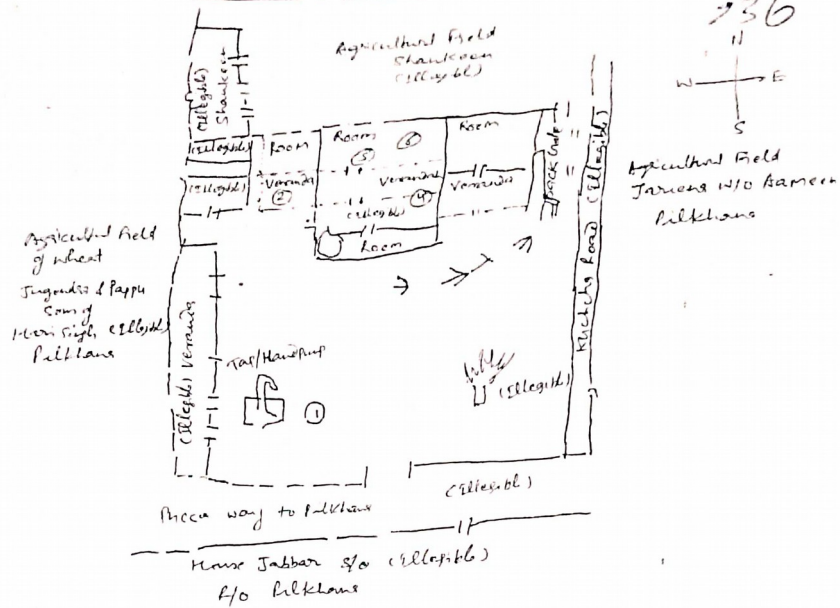 936
N
W E
S
Agricultural Field
Shankeen
(Illegible)
(Illegible)
Shankeen
(Illegible)
(Illegible)
Room
Veranda
2
Room
5
6
Veranda
4
(Illegible)
Room
Room
Veranda
Back Side
Kuchcha Road (Illegible)
Agricultural Field
W/O
Pilkhana
Agricultural Field
of wheat
Jugendra & Pappu
Sons of
Hari Singh (Illegible)
Pilkhana
(Illegible) Veranda
Tap/Handpump
1
(Illegible)
(Illegible)
Pucca way to Pilkhana
House Jabbar S/o (Illegible)
R/o Pilkhana